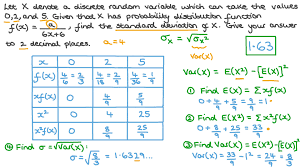 Let X denote a discrete random variable which can take the values
0, 2, and 5. Given that X has probability distribution function
f(x) = (a)/(6x+6), find the standard deviation of X. Give your answer
to 2 decimal places. a=4
σx = √σx²
Var(X)
1.63
x 0 2 5
f(x) 4/6 = 2/3 4/18 = 2/9 4/36 = 1/9
xf(x) 0 4/9 5/9
x² 0 4 25
x²f(x) 0 8/9 25/9
Var(X) = E(X²) - [E(X)]²
① Find E(X) = Σxf(x)
0 + 4/9 + 5/9 = 9/9 = 1
② Find E(X²) = Σx²f(x)
0 + 8/9 + 25/9 = 33/9
③ Find Var(X) = E(X²) - [E(X)]²
Var(X) = 33/9 - 1² = 24/9 = 8/3
④ Find σ = √Var(X)
σ = √8/3 = 1.6329...